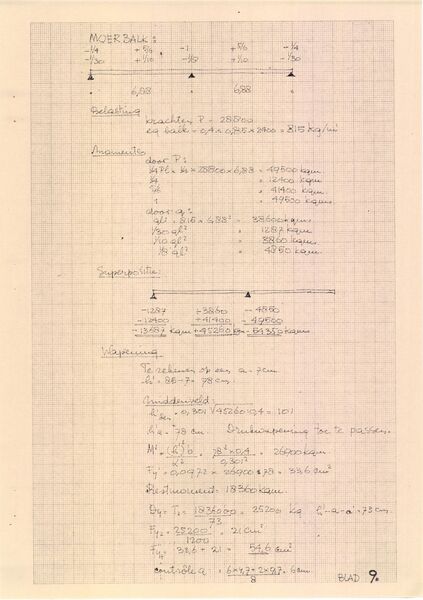 MOERBALK:
-1/4 +5/6 -1 +5/6 -1/4
-1/30 +1/10 -1/8 +1/10 -1/30
6,88 6,88
Belasting
krachten P = 28800
eg balk = 0,4 x 0,85 x 2400 = 815 kg/m'
Momenten
door P:
1/4 Pl = 1/4 x 28800 x 6,88 = 49500 kgm
1/4 = 12400 kgm
5/6 = 41400 kgm
1 = 49500 kgm
door q:
ql² = 815 x 6,88² = 38600 kgm
1/30 ql² = 1287 kgm
1/10 ql² = 3860 kgm
1/8 ql² = 4850 kgm
Superpositie:
-1287 +3860 -4850
-12400 +41400 -49500
-13687 kgm +45260 -54350 kgm
Wapening
Te rekenen op een a = 7cm
h' = 85-7 = 78 cm.
Middenveld:
= 0,301 √45260:0,4 = 101
h'a = 78 cm Drukwapening toe te passen.
M' = (h')²b = 78² x 0,4 = 26900 kgm
k² 0,301²
Fy' = 0,0972 x 26900 : 78 = 33,6 cm²
Restmoment = 18360 kgm.
= 1836000 = 25200 kg h'-a-a' = 73 cm
73
= 25200 = 21 cm²
1200
33,6 + 21 = 54,6 cm²
contrôle a =
8
BLAD 9.